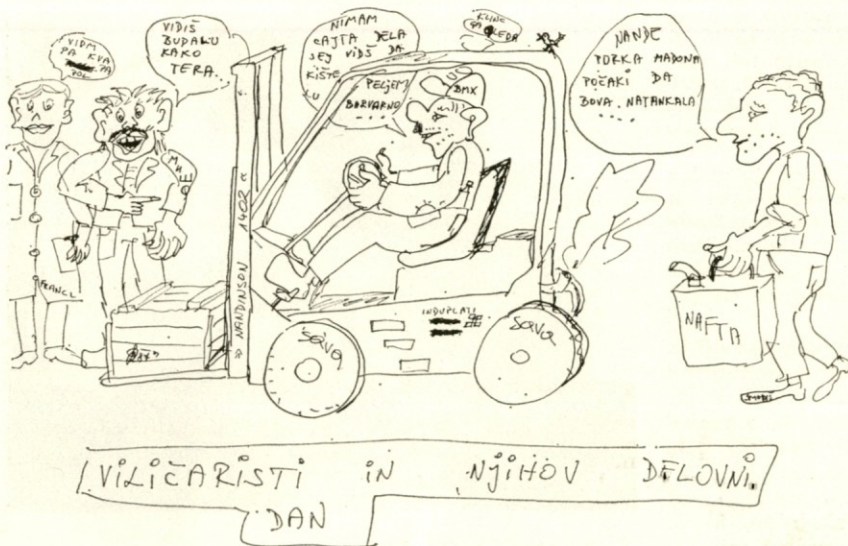 VIDM
PA KVA
PA
VIDIŠ
BUDALU
KAKO
TERA...
NIMAM
CAJTA DELA
SEJ VIDŠ DA
KIŠTE
PELJEM
BARVARNO
KLINC
GLEDA
NANDE
PORKA MADONA
POČAKI DA
BOVA NATANKALA
....
BMX
FRANCL
» NANDINSON 1402 «
INDUPLATI
SAVA
SAVA
NAFTA
VILIČARISTI IN NJIHOV DELOVNI
DAN